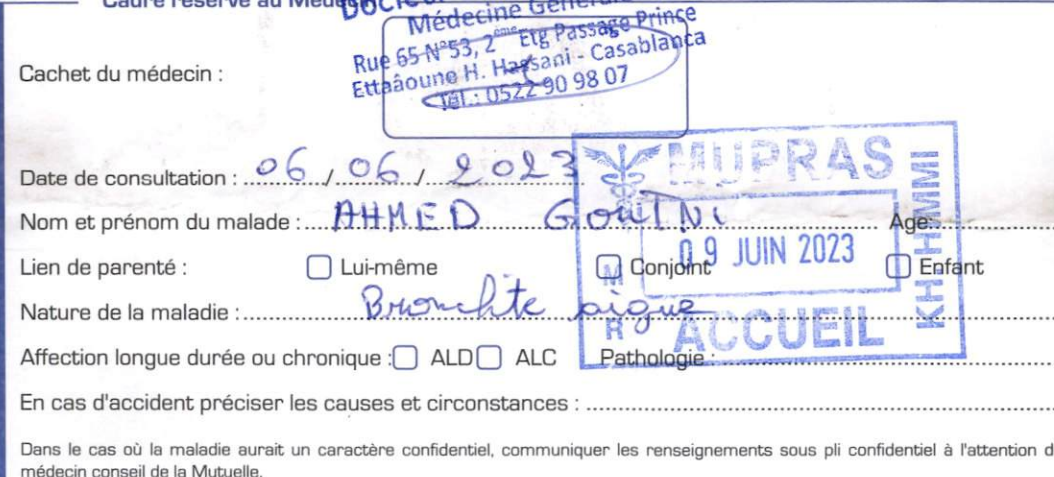 Cadre réservé au Méde
Médecine Générale
Rue 65 N°53, 2ème Etg Passage Prince
Ettaâoune H. Hassani - Casablanca
Tél.: 0522 90 98 07
Cachet du médecin :
Date de consultation : 06 / 06 / 2023
MUPRAS
Nom et prénom du malade : AHMED GOUINI Age:
09 JUIN 2023
Lien de parenté : Lui-même Conjoint Enfant
Nature de la maladie : Bronchite aigue
ACCUEIL
Affection longue durée ou chronique : ALD ALC Pathologie :
En cas d'accident préciser les causes et circonstances :
Dans le cas où la maladie aurait un caractère confidentiel, communiquer les renseignements sous pli confidentiel à l'attention d
médecin conseil de la Mutuelle.